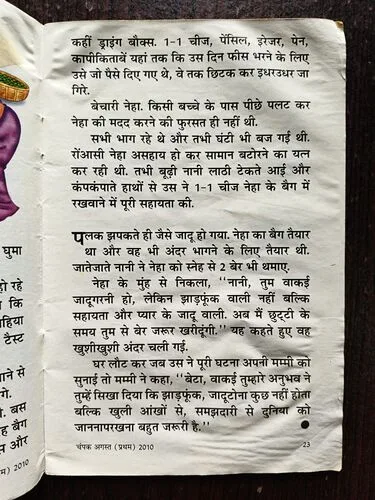 कहीं ड्राइंग बौक्स. 1-1 चीज, पेंसिल, इरेजर, पेन,
कापीकिताबें यहां तक कि उस दिन फीस भरने के लिए
उसे जो पैसे दिए गए थे, वे तक छिटक कर इधरउधर जा
गिरे.
बेचारी नेहा. किसी बच्चे के पास पीछे पलट कर
नेहा की मदद करने की फुरसत ही नहीं थी.
सभी भाग रहे थे और तभी घंटी भी बज गई थी.
रोंआसी नेहा असहाय हो कर सामान बटोरने का यत्न
कर रही थी. तभी बूढ़ी नानी लाठी टेकते आई और
कंपकंपाते हाथों से उस ने 1-1 चीज नेहा के बैग में
रखवाने में पूरी सहायता की.
पलक झपकते ही जैसे जादू हो गया. नेहा का बैग तैयार
था और वह भी अंदर भागने के लिए तैयार थी.
जातेजाते नानी ने नेहा को स्नेह से 2 बेर भी थमाए.
नेहा के मुंह से निकला, ''नानी, तुम वाकई
जादूगरनी हो, लेकिन झाड़फूंक वाली नहीं बल्कि
सहायता और प्यार के जादू वाली. अब मैं छुट्टी के
समय तुम से बेर जरूर खरीदूंगी.'' यह कहते हुए वह
खुशीखुशी अंदर चली गई.
घर लौट कर जब उस ने पूरी घटना अपनी मम्मी को
सुनाई तो मम्मी ने कहा, ''बेटा, वाकई तुम्हारे अनुभव ने
तुम्हें सिखा दिया कि झाड़फूंक, जादूटोना कुछ नहीं होता
बल्कि खुली आंखों से, समझदारी से दुनिया को
जाननापरखना बहुत जरूरी है.''
चंपक अगस्त (प्रथम) 2010
23
घुमा
हो रहे
कि
टैस्ट
ाने से
गे.
बस
बैग
स और
म) 2010